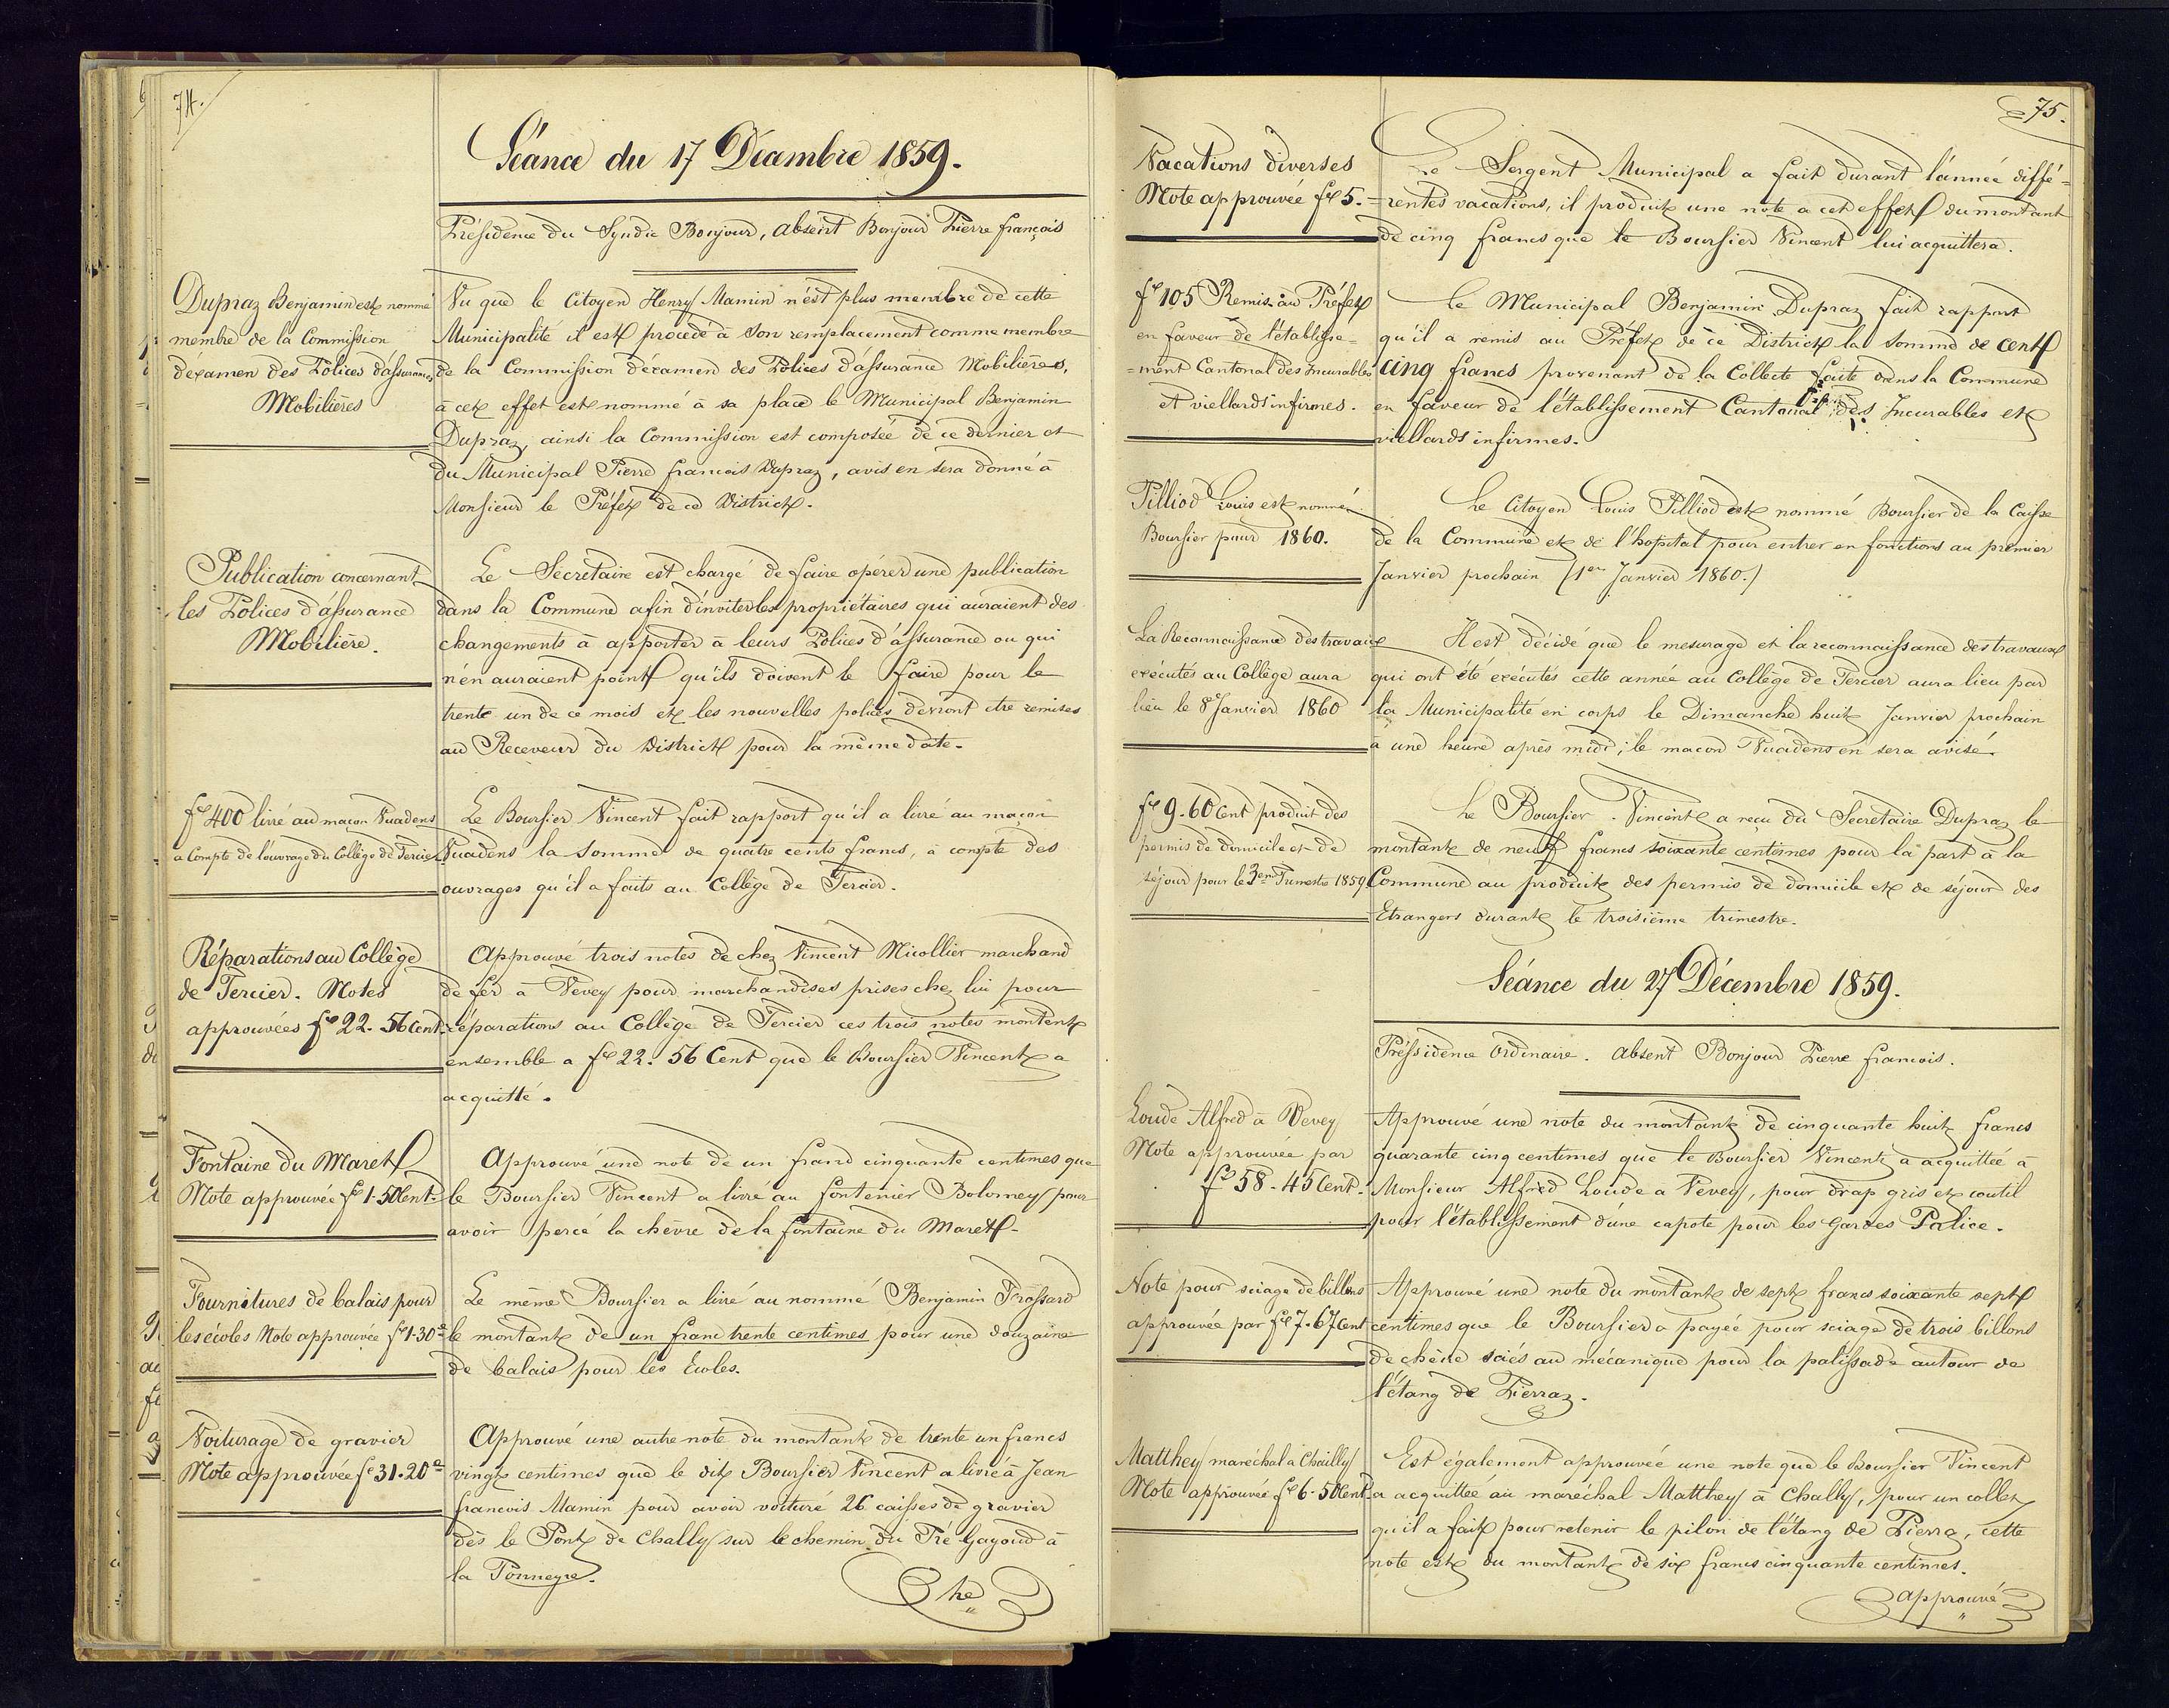 74.
Séance du 17 Décembre 1859.
Présidence du Syndic Bonjour, absent Bonjour Pierre françois
Dupraz Benjamin est nommé
membre de la Commission
d'éxamen des Polices d'assurances
Mobilières
Vu que le Citoyen Henry Mamin n'est plus membre de cette
Municipalité il est procédé à son remplacement comme membre
de la Commission d'éxamen des Polices d'assurance Mobilières,
à cet effet est nommé à sa place le Municipal Benjamin
Dupraz, ainsi la Commission est composée de ce dernier et
du Municipal Pierre francois Dupraz, avis en sera donné à
Monsieur le Préfet de ce District.
Publication concernant
les Polices d'assurance
Mobilière.
Le Sécretaire est chargé de faire opérer une publication
dans la Commune afin d'inviter les propriétaires qui auraient des
changements à apporter à leurs Polices d'assurance ou qui
n'en auraient point qu'ils doivent le faire pour le
trente un de ce mois et les nouvelles polices devront etre remises
au Receveur du District pour la même date.
fcs 400 livré au maçon Vuadens
a Compte de l'ouvrage du Collège de Tercier
Le Boursier Vincent fait rapport qu'il a livré au maçon
Vuadens la somme de quatre cents francs, à compte des
ouvrages qu'il a faits au Collège de Tercier.
Réparations au Collège
de Tercier. Notes
approuvées fcs 22. 56 Cent.
Approuvé trois notes de chez Vincent Nicollier marchand
de fer à Vevey pour marchandises prises chez lui pour
réparations au Collège de Tercier ces trois notes montent
ensemble a fcs 22. 56 Cent que le Boursier Vincent a
acquitté.
Fontaine du Maret
Note approuvée fcs 1-50 Cent.
Approuvé une note de un franc cinquante centimes que
le Boursier Vincent a livré au fontenier Bolomey pour
avoir percé la chèvre de la fontaine du Maret.
Fournitures de balais pour
les écoles Note approuvée fcs 1-30 c
Le même Boursier a livré au nommé Benjamin Frossard
le montant de un franc trente centimes pour une douzaine
de balais pour les Ecoles.
Voiturage de gravier
Note approuvée fcs 31.20 c
Approuvé une autre note du montant de trente un francs
vingt centimes que le dit Boursier Vincent a livré à Jean
francois Mamin pour avoir voituré 26 caisses de gravier
dès le Pont de Chailly sur le chemin du Pré Gayoud à
la Ponneyre.
Le
75.
Vacations diverses
Note approuvée fcs 5.
Le Sergent Municipal a fait durant l'année diffé=
=rentes vacations, il produit une note a cet effet du montant
de cinq francs que le Boursier Vincent lui acquittera.
fcs 105 Remis au Préfet
en faveur de l'établisse=
=ment Cantonal des Incurables
et viellards infirmes.
Le Municipal Benjamin Dupraz fait rapport
qu'il a remis au Préfet de ce District la somme de cent
cinq francs provenant de la Collecte faite dans la Commune
en faveur de l'établissement Cantonal des Incurables et
viellards infirmes.
Pilliod Louis est nommé
Boursier pour 1860.
Le Citoyen Louis Pilliod est nommé Boursier de la Caisse
de la Commune et de l'hopital pour entrer en fonctions au premier
Janvier prochain (1er Janvier 1860.)
La Reconnaissance des travaux
exécutés au Collège aura
lieu le 8 Janvier 1860
Il est décidé que le mesurage et la reconnaissance des travaux
qui ont été exécutés cette année au Collège de Tercier aura lieu par
la Municipalité en corps le Dimanche huit Janvier prochain
à une heure après midi; le macon Vuadens en sera avisé.
fcs 9.60 Cent produit des
permis de domicile et de
séjour pour le 3em Trimestre 1859
Le Boursier Vincent a reçu du Secrétaire Dupraz le
montant de neuf francs soixante centimes pour la part à la
Commune au produit des permis de domicile et de séjour des
Etrangers durant le troisième trimestre.
Séance du 27 Décembre 1859.
Préssidence Ordinaire. absent Bonjour Pierre francois.
Loude Alfred à Vevey
Note approuvée par
fcs 58-45 Cent.
Approuvé une note du montant de cinquante huit francs
quarante cinq centimes que le Boursier Vincent a acquittée à
Monsieur Alfred Loude a Vevey, pour drap gris et coutil
pour l'établissement d'une capote pour les Gardes Police.
Note pour sciage de billons
approuvée par fcs 7.67 Cent
Approuvé une note du montant de sept francs soixante sept
centimes que le Boursier a payée pour sciage de trois billons
de chêne sciés au mécanique pour la palissade autour de
l'étang de Pierraz.
Matthey maréchal a Chailly
Note approuvée fcs 6-50 Cent.
Est également approuvée une note que le Boursier Vincent
a acquittée au maréchal Matthey à Chailly, pour un collet
qu'il a fait pour retenir le pilon de l'étang de Pierra, cette
note est du montant de six francs cinquante centimes.
approuvé